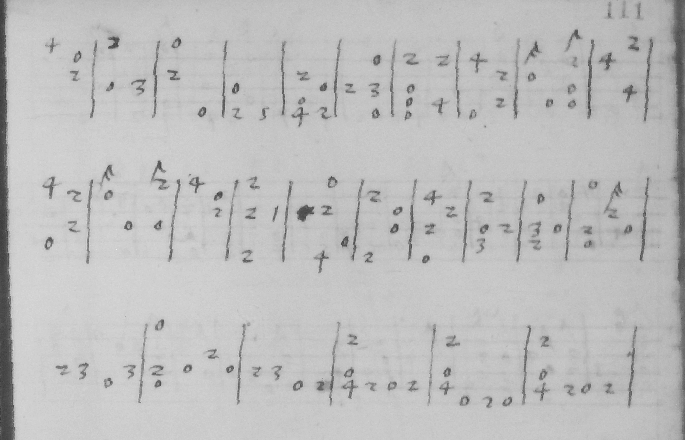 111
4 0 2 | 2 0 3 | 0 2 0 | 0 2 5 | 2 0 4 0 2 | 2 0 3 0 | 2 0 0 0 2 4 | 4 0 2 2 | 0 0 2 0 0 | 4 2 4 |
4 0 2 2 | 0 0 2 0 | 4 0 2 | 2 2 2 1 | 2 0 4 0 | 2 2 0 0 | 4 2 0 2 | 2 0 3 2 | 0 3 2 0 | 0 2 0 2 0 |
2 3 0 3 | 0 2 0 0 2 0 | 2 3 0 2 | 2 0 4 2 0 2 | 2 0 4 0 2 0 | 2 0 4 2 0 2 |